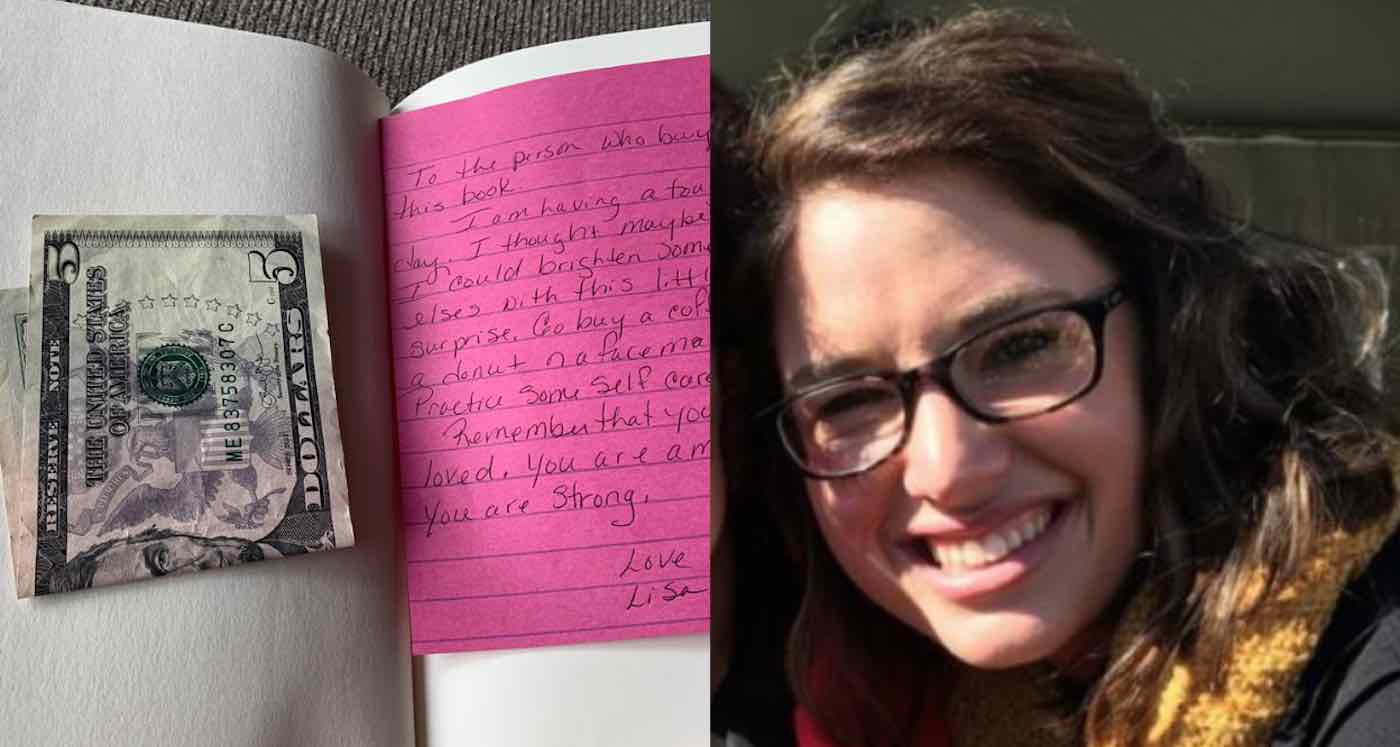 RESERVE NOTE
THE UNITED STATES
OF AMERICA
5
5
ME 83758307 C
DOLLARS
To the person who buy
this book.
I am having a tou
day. I thought maybe
I could brighten some
elses with this litt
surprise. Go buy a cof
a donut n a face ma
Practice some self care
Remember that you
loved. You are am
You are Strong.
Love
Lisa